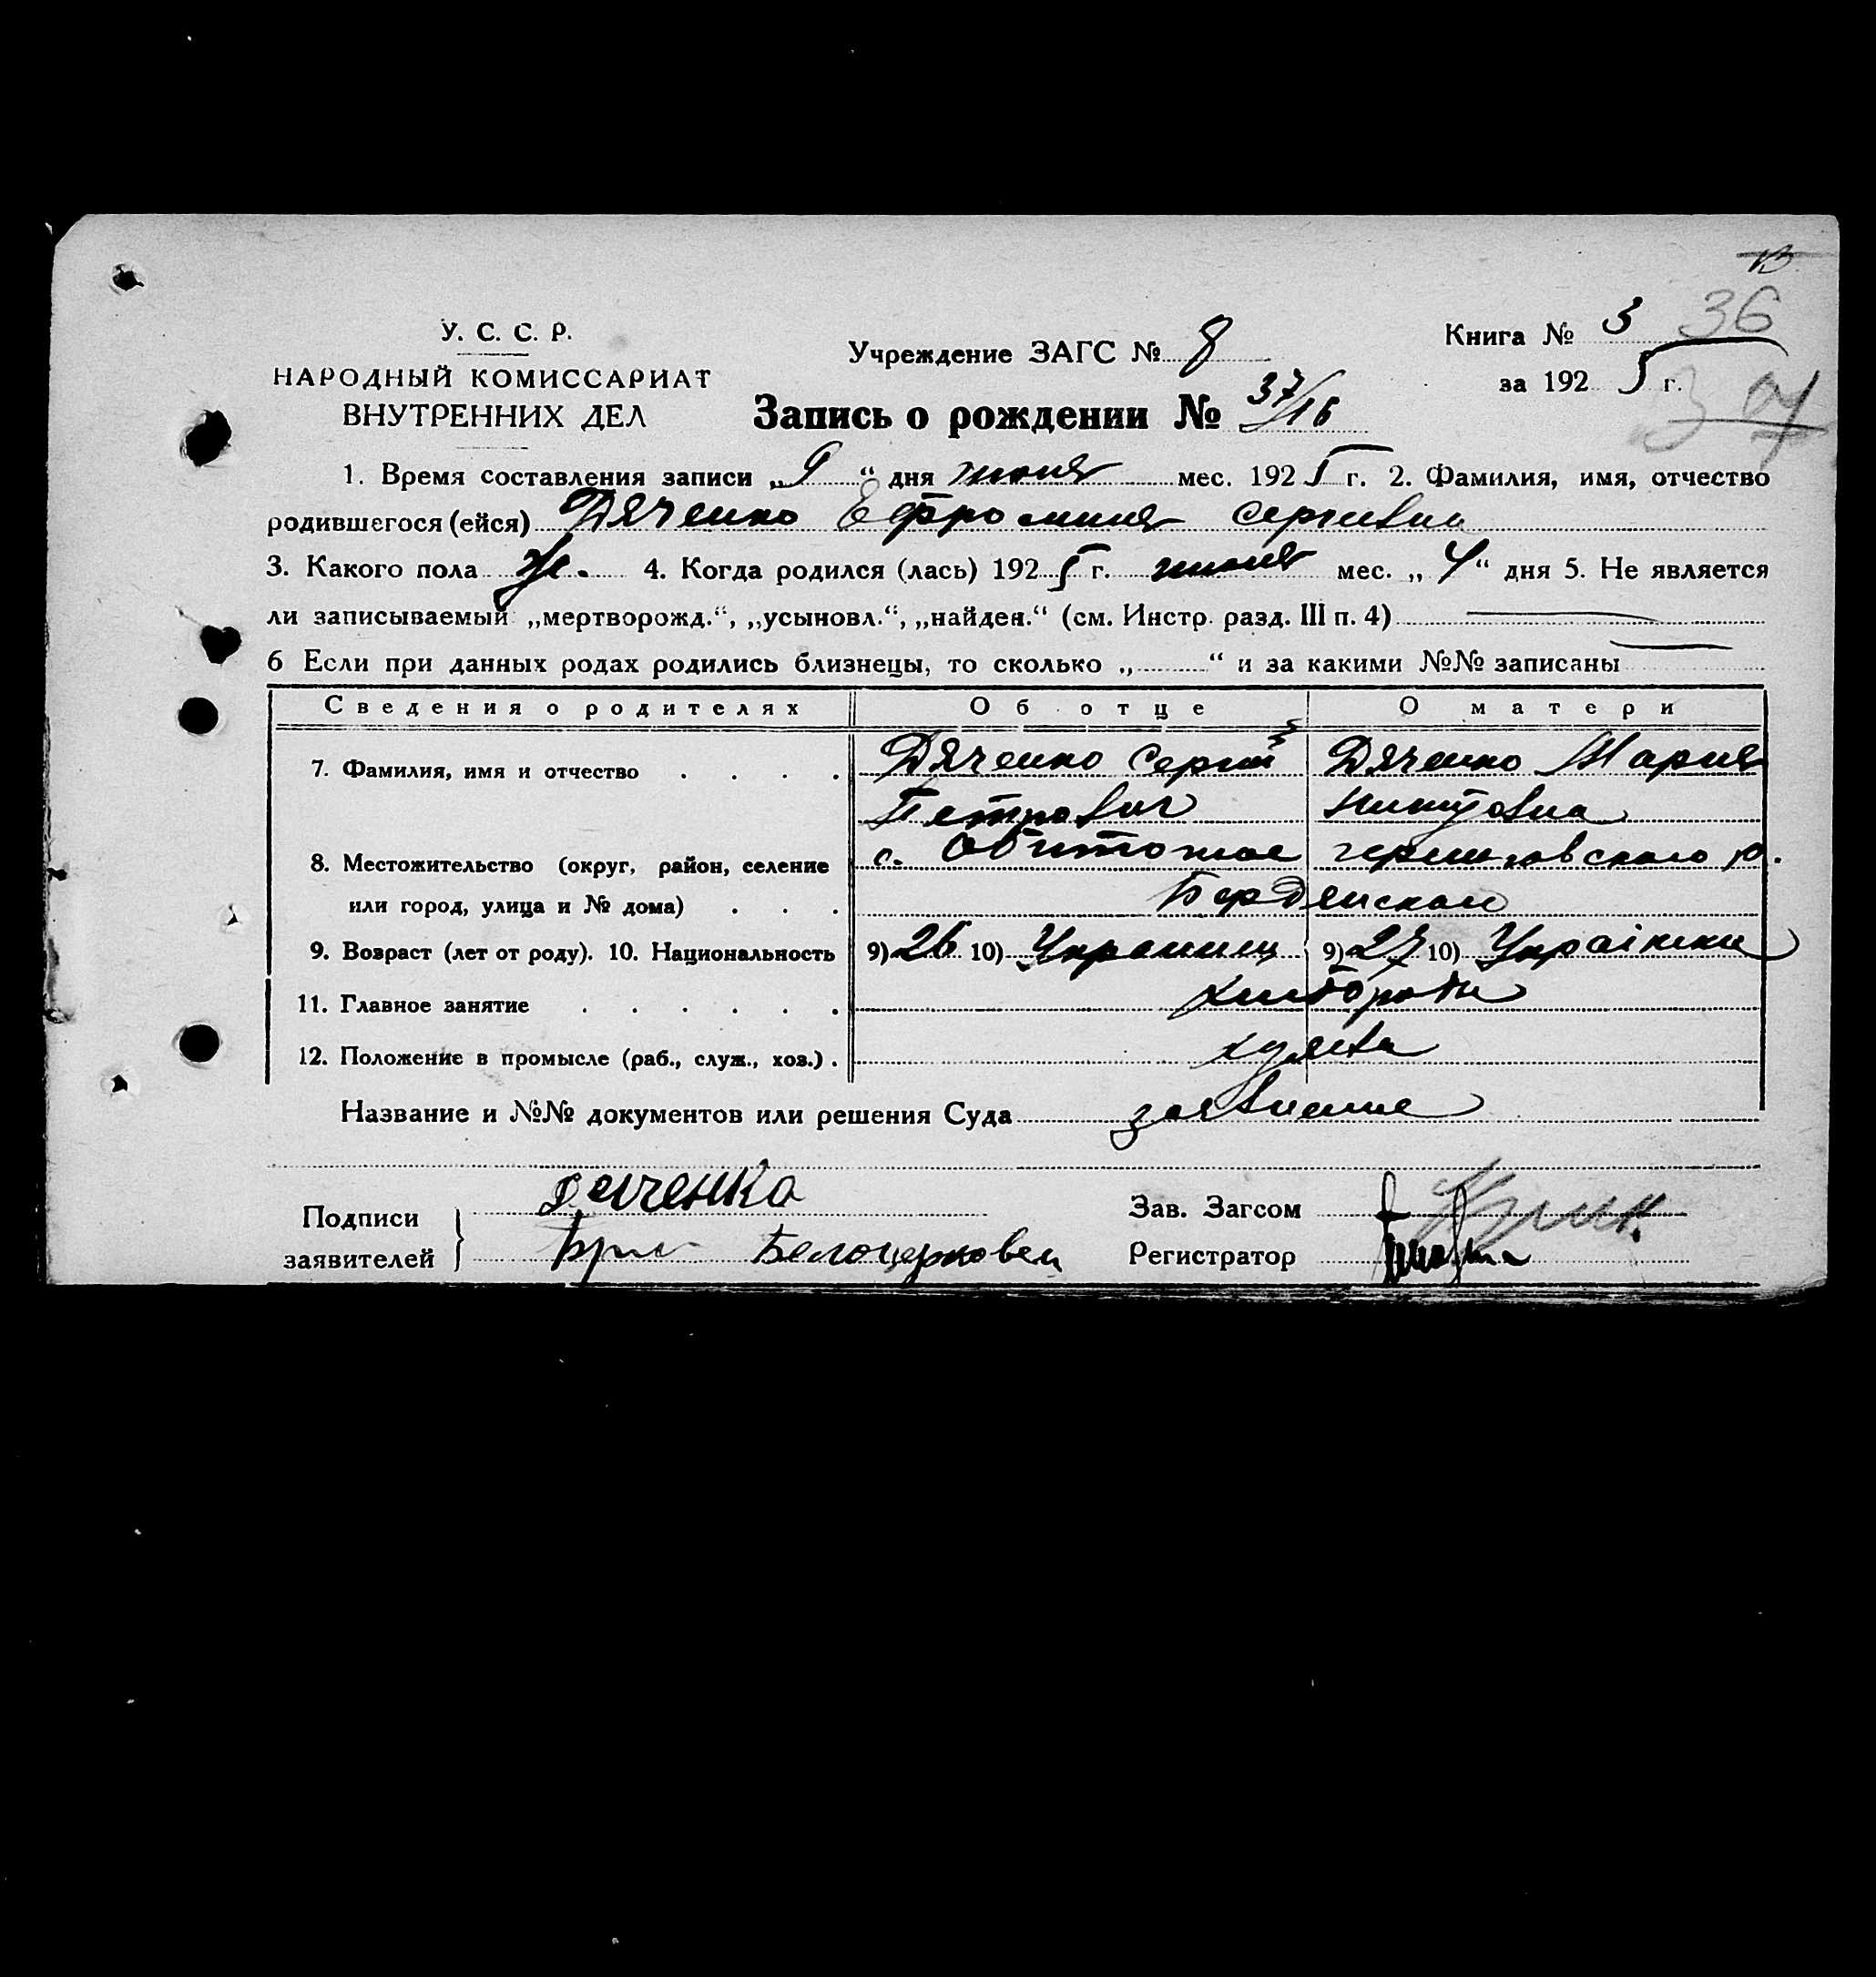 13
У. С. С. Р.
НАРОДНЫЙ КОМИССАРИАТ
ВНУТРЕННИХ ДЕЛ
Учреждение ЗАГС № 8
Книга № 3 36
за 1925 г.
Запись о рождении № 37/16
1. Время составления записи „9“ дня июня мес. 1925 г. 2. Фамилия, имя, отчество
родившегося (ейся) Дяченко Ефросиния
3. Какого пола ж. 4. Когда родился (лась) 1925 г. июня мес. „4“ дня 5. Не является
ли записываемый „мертворожд.“, „усыновл.“, „найден.“ (см. Инстр. разд. III п. 4)
6 Если при данных родах родились близнецы, то сколько „ “ и за какими №№ записаны
Сведения о родителях Об отце О матери
7. Фамилия, имя и отчество . . . . Дяченко Сергий Дяченко Мария
Петрович
8. Местожительство (округ, район, селение с. Обиточное
или город, улица и № дома) . . . Бердянского
9. Возраст (лет от роду). 10. Национальность 9) 26 10) Украинец 9) 27 10) Українка
11. Главное занятие . . . . . . хлебороби
12. Положение в промысле (раб., служ., хоз.) .
Название и №№ документов или решения Суда заявление
Подписи
заявителей
Дяченко
Белоцерковец
Зав. Загсом
Регистратор